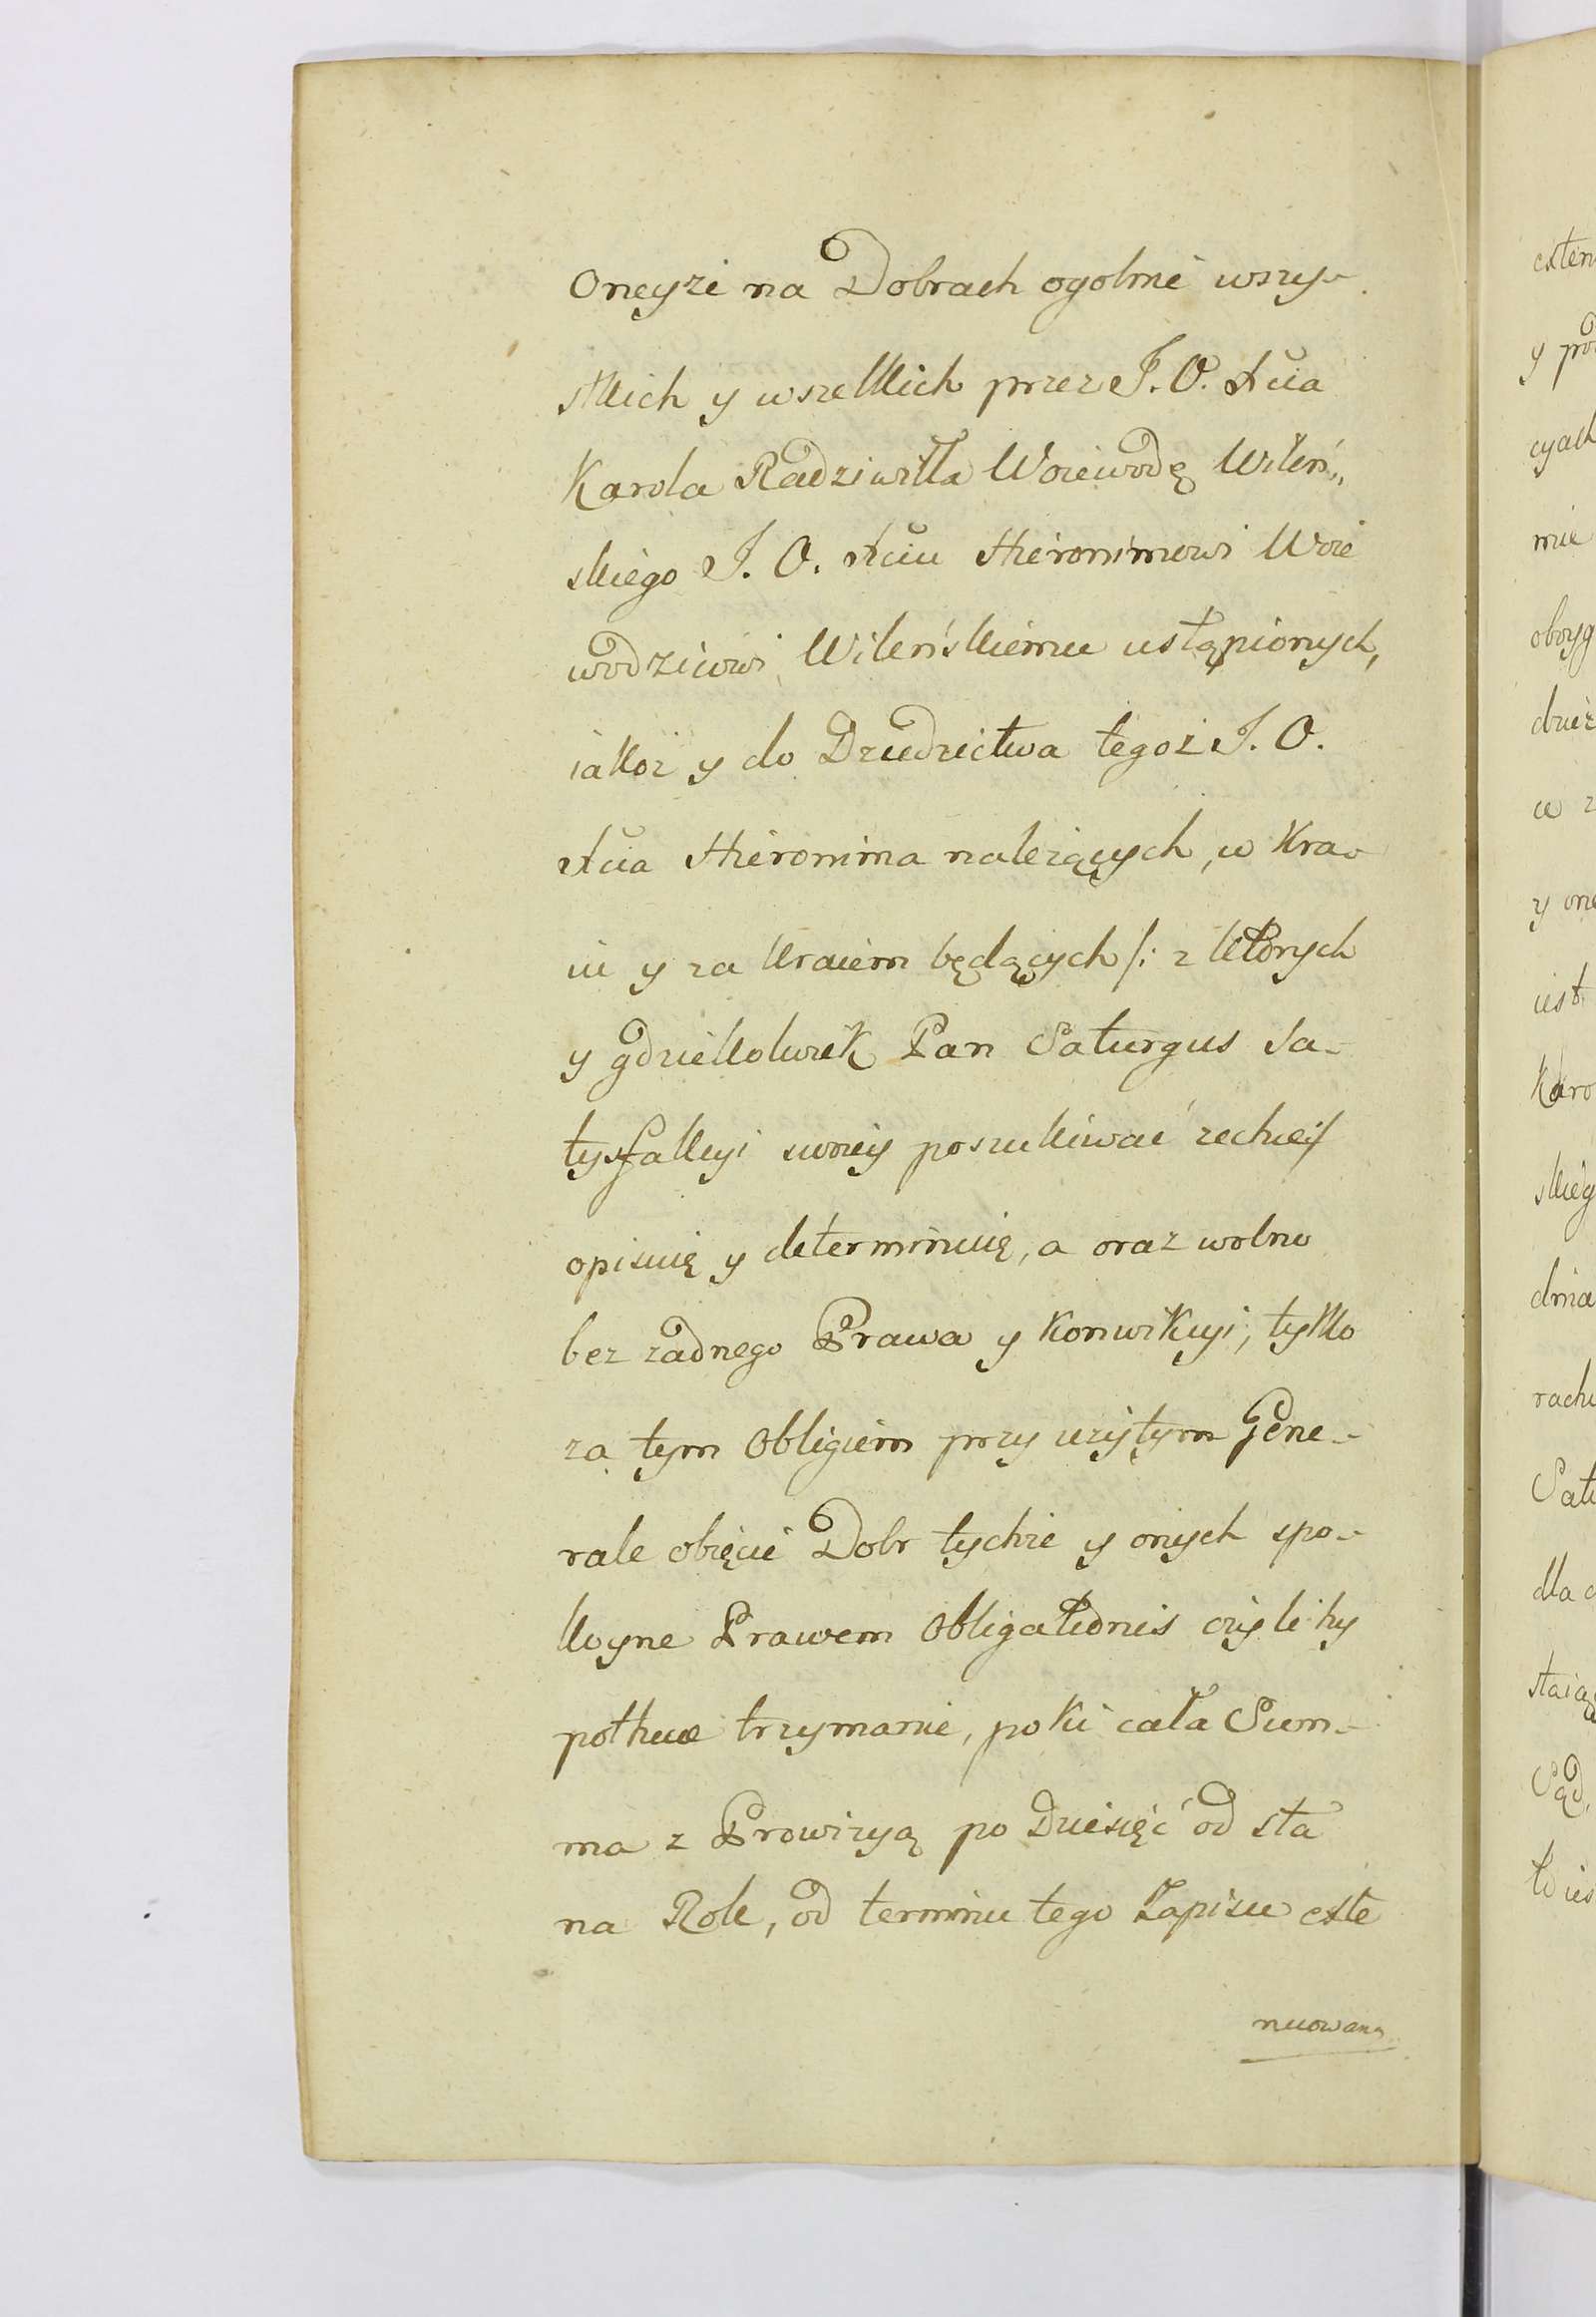 Oneyże na Dobrach ogolnie wszy-
stkich y wszelkich przez J. O. Xcia
Karola Radziwiłła Woiewodę Wileń„
skiego J. O. Xciu Hieronimowi Woie
wodzicowi Wileńskiemu ustąpionych,
iakoż y do Dziedzictwa tegoż J. O.
Xcia Hieronima należących, w Kra-
iu y za kraiem będących /: z ktorych
y gdziekolwiek Pan Saturgus Sa-
tysfakcyi swoiey poszukiwać zechce :/
opisuię y determinuię, a oraz wolno
bez żadnego Prawa y Konwikcyi, tylko
za tym Obligiem przy użytym Gene-
rale obięcie Dobr tychże y onych spo-
koyne Prawem Obligationis czyli hy
pothecæ trzymanie, poki cała Sum-
ma z Prowizyą po Dziesięć od sta
na Rok, od terminu tego Zapisu exte
nuowana
exten
y po
cyach
mie
obryg
dzież
w z
y one
iest
Karo
skieg
dnia
rachu
Satu
dla
staią
Sąd
to ies